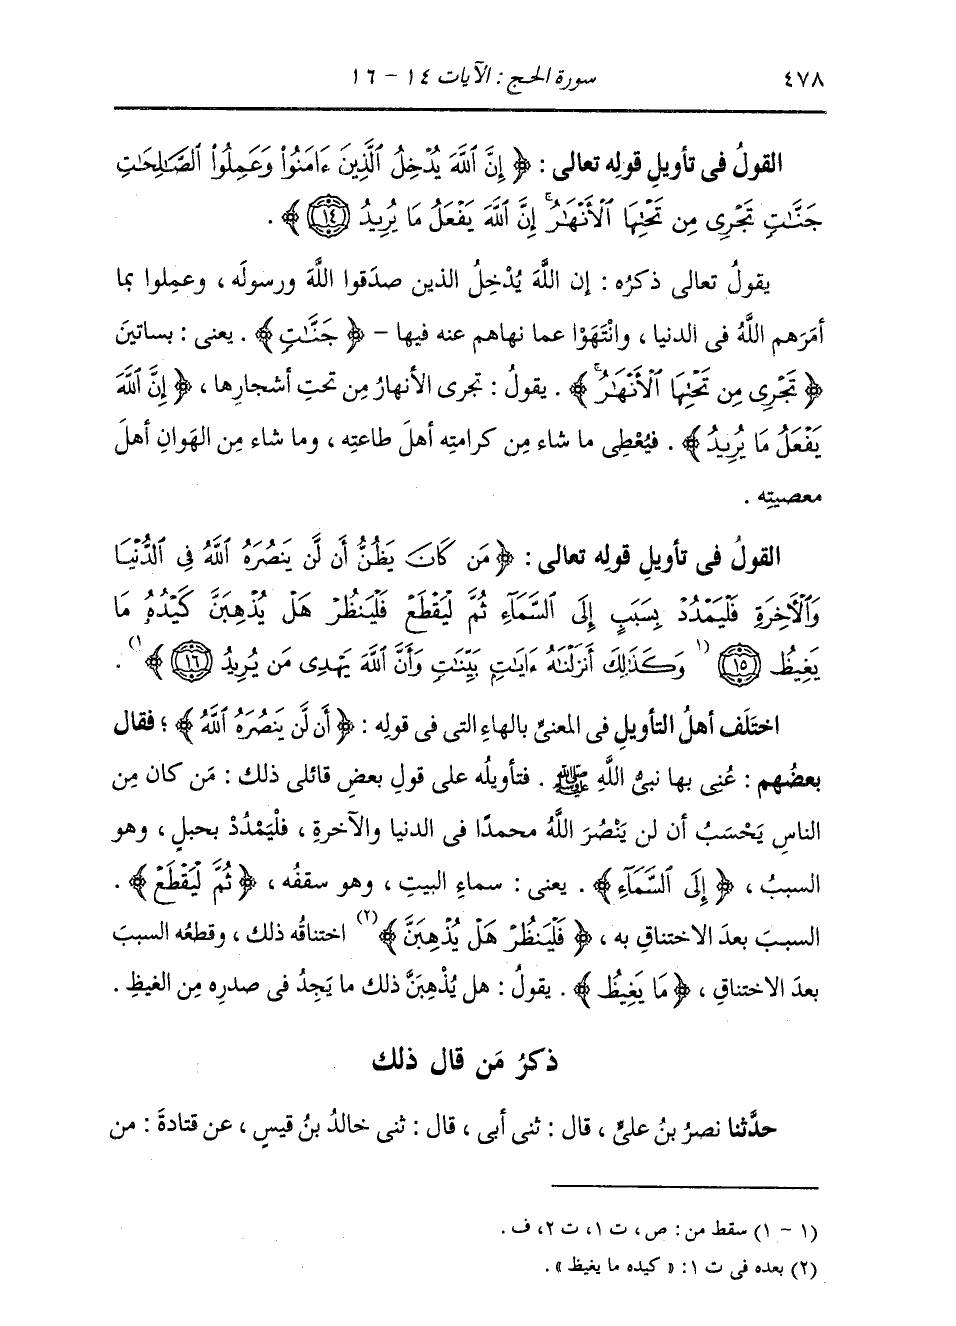 ٤٧٨ سورة الحج : الآيات ١٤ - ١٦
القولُ فى تأويلِ قولِه تعالى : ﴿ إِنَّ ٱللَّهَ يُدْخِلُ ٱلَّذِينَ ءَامَنُوا۟ وَعَمِلُوا۟ ٱلصَّـٰلِحَـٰتِ
جَنَّـٰتٍ تَجْرِى مِن تَحْتِهَا ٱلْأَنْهَـٰرُ ۚ إِنَّ ٱللَّهَ يَفْعَلُ مَا يُرِيدُ ﴿١٤﴾ ﴾ .
يقولُ تعالى ذكرُه : إن اللَّهَ يُدْخِلُ الذين صدَقوا اللَّهَ ورسولَه ، وعمِلوا بما
أمَرَهم اللَّهُ فى الدنيا ، وانْتَهَوْا عما نهاهم عنه فيها - ﴿ جَنَّـٰتٍ ﴾ . يعنى : بساتينَ
﴿ تَجْرِى مِن تَحْتِهَا ٱلْأَنْهَـٰرُ ۚ ﴾ . يقولُ : تجرى الأنهارُ مِن تحتِ أشجارِها ، ﴿ إِنَّ ٱللَّهَ
يَفْعَلُ مَا يُرِيدُ ﴾ . فيُعْطِى ما شاء مِن كرامتِه أهلَ طاعتِه ، وما شاء مِن الهَوانِ أهلَ
معصيتِه .
القولُ فى تأويلِ قولِه تعالى : ﴿ مَن كَانَ يَظُنُّ أَن لَّن يَنصُرَهُ ٱللَّهُ فِى ٱلدُّنْيَا
وَٱلْـَٔاخِرَةِ فَلْيَمْدُدْ بِسَبَبٍ إِلَى ٱلسَّمَآءِ ثُمَّ لْيَقْطَعْ فَلْيَنظُرْ هَلْ يُذْهِبَنَّ كَيْدُهُۥ مَا
يَغِيظُ ﴿١٥﴾ (١) وَكَذَٰلِكَ أَنزَلْنَـٰهُ ءَايَـٰتٍۭ بَيِّنَـٰتٍ وَأَنَّ ٱللَّهَ يَهْدِى مَن يُرِيدُ ﴿١٦﴾ ﴾ (١) .
اختَلَف أهلُ التأويلِ فى المعنىِّ بالهاءِ التى فى قولِه : ﴿ أَن لَّن يَنصُرَهُ ٱللَّهُ ﴾ ؛ فقال
بعضُهم : عُنِى بها نبىُّ اللَّهِ ﷺ . فتأويلُه على قولِ بعضِ قائلى ذلك : مَن كان مِن
الناسِ يَحْسَبُ أن لن يَنْصُرَ اللَّهُ محمدًا فى الدنيا والآخرةِ ، فلْيَمْدُدْ بحبلٍ ، وهو
السببُ ، ﴿ إِلَى ٱلسَّمَآءِ ﴾ . يعنى : سماءِ البيتِ ، وهو سقفُه ، ﴿ ثُمَّ لْيَقْطَعْ ﴾ .
السببَ بعدَ الاختناقِ به ، ﴿ فَلْيَنظُرْ هَلْ يُذْهِبَنَّ ﴾ (٢) اختناقُه ذلك ، وقطعُه السببَ
بعدَ الاختناقِ ، ﴿ مَا يَغِيظُ ﴾ . يقولُ : هل يُذْهِبَنَّ ذلك ما يَجِدُ فى صدرِه مِن الغيظِ .
ذكرُ مَن قال ذلك
حدَّثنا نصرُ بنُ علىٍّ ، قال : ثنى أبى ، قال : ثنى خالدُ بنُ قيسٍ ، عن قتادةَ : من
(١ - ١) سقط من : ص ، ت ١ ، ت ٢ ، ف .
(٢) بعده فى ت ١ : « كيده ما يغيظ » .